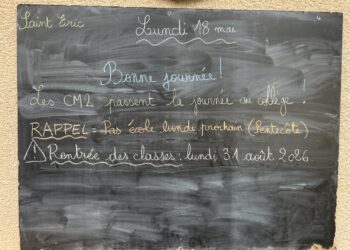 Saint Éric
Lundi 18 mai
Bonne journée !
Les CM2 passent la journée au collège !
RAPPEL = Pas école lundi prochain (Pentecôte)
⚠ Rentrée des classes : lundi 31 août 2026